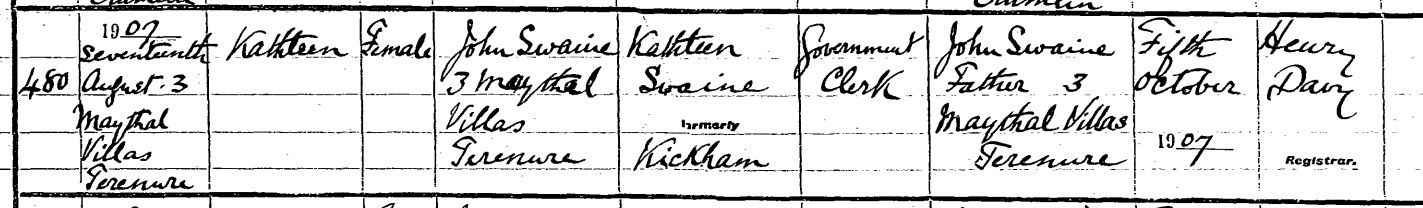 1907
Seventeenth Kathleen Female John Swaine Kathleen Government John Swaine Fifth Henry
480 August. 3 3 Maythal Swaine Clerk Father 3 October Davy
Maythal Villas formerly Maythal Villas
Villas Terenure Kickham Terenure 1907 Registrar.
Terenure